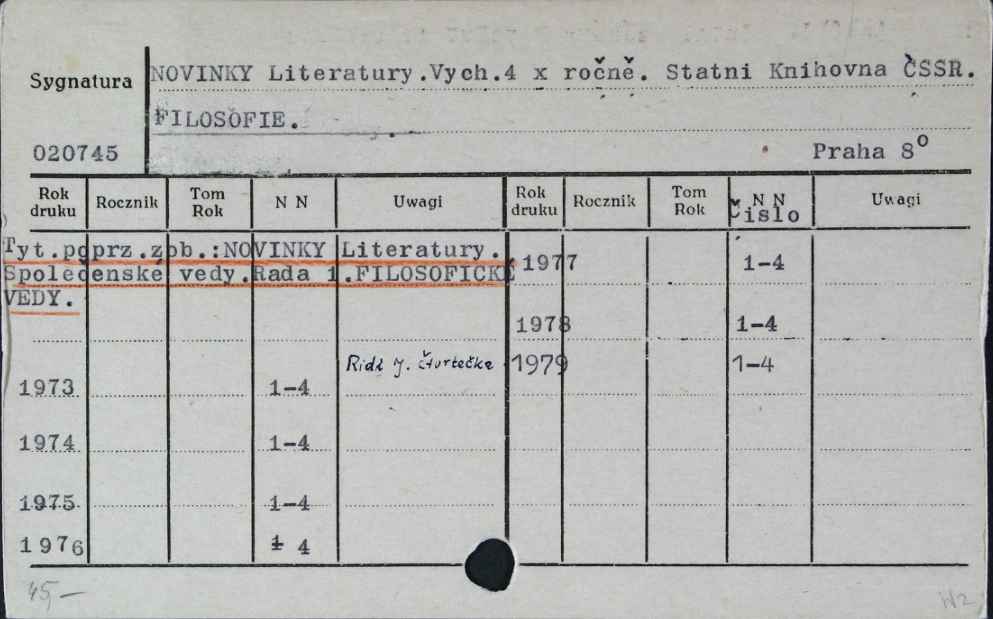 Sygnatura
NOVINKY Literatury.Vych.4 x ročně. Statni Knihovna ČSSR.
FILOSOFIE.
020745
Praha 8º
Rok druku Rocznik Tom Rok N N Uwagi Rok druku Rocznik Tom Rok N N Uwagi
Čislo
Tyt.poprz.zob.:NOVINKY Literatury.
Společenské vedy.Rada 1.FILOSOFICKÉ 1977 1-4
VEDY.
1978 1-4
Ridí J. Čtvrtečka 1979 1-4
1973 1-4
1974 1-4
1975 1-4
1976 1 4
45,-